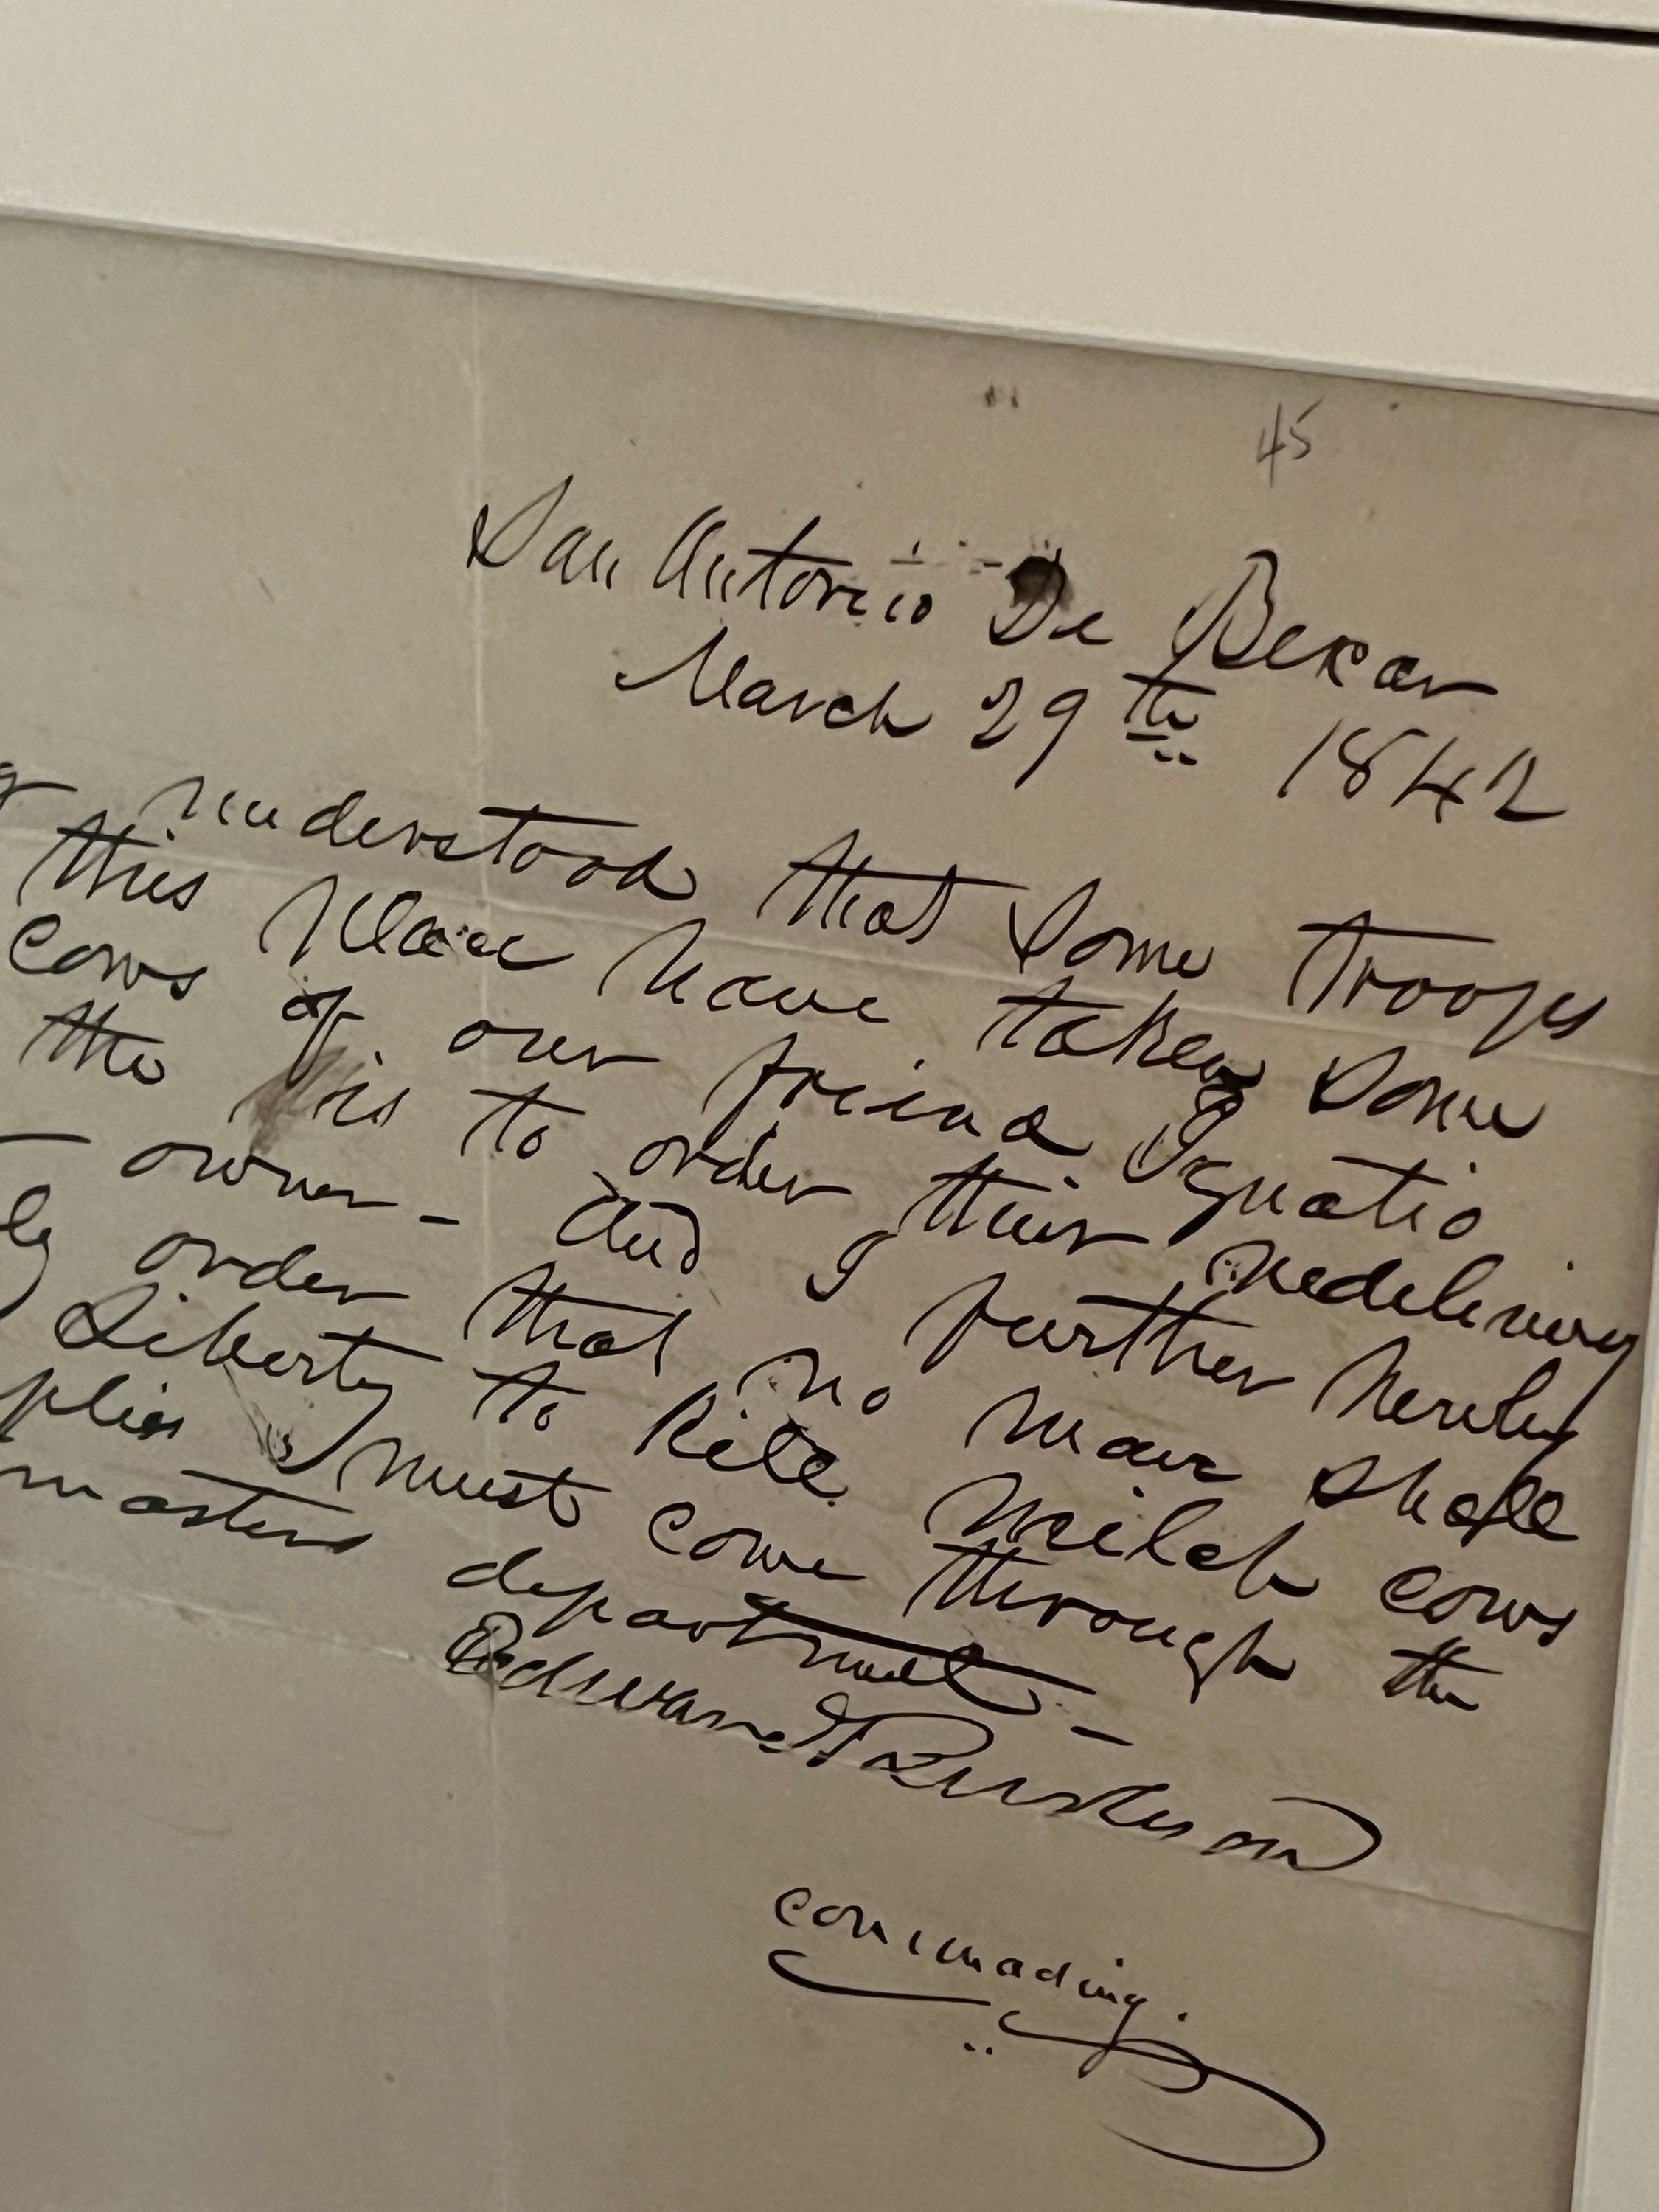 45
San Antonio De Bexar
March 29th 1842
understood that Some troops
this place have taken Some
cows of our friend Ignatio
the is to order their redelivery
owner - And I further hereby
ly order that no man shall
Liberty to kill milch cows
plies must come through the
masters department -
Edward Burleson
commading.